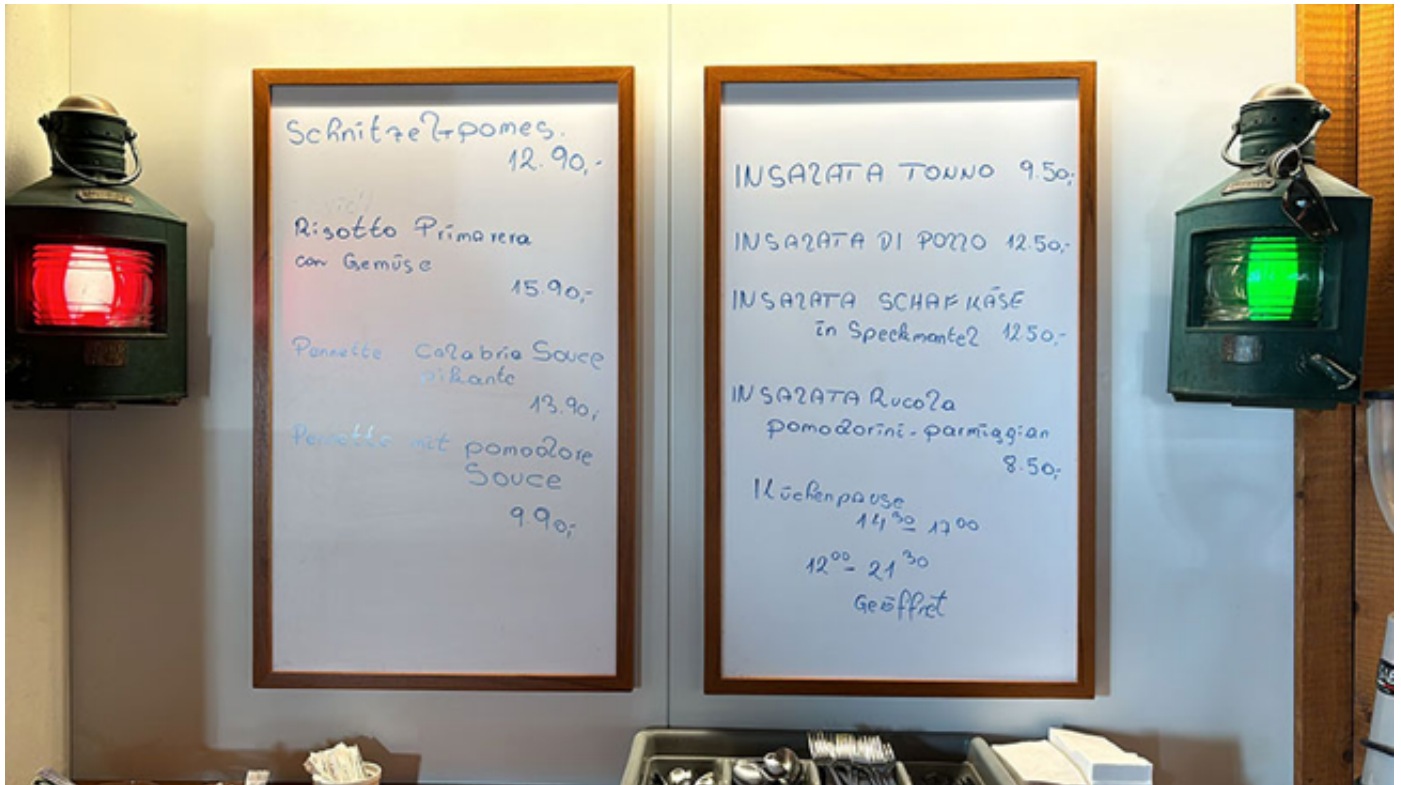 Schnitzel+pomes.
12.90,-
Risotto Primavera
con Gemüse
15.90,-
Pennette Calabria Souce
pikante
13.90,
Pennette mit pomodore
Souce
9.90,-
INSALATA TONNO 9.50,-
INSALATA DI POZZO 12.50,-
INSALATA SCHAFKÄSE
in Speckmantel 12.50,-
INSALATA Rucola
pomodorini-parmiggian
8.50,-
Küchenpause
14³⁰ - 17⁰⁰
12⁰⁰ - 21³⁰
Geöffnet